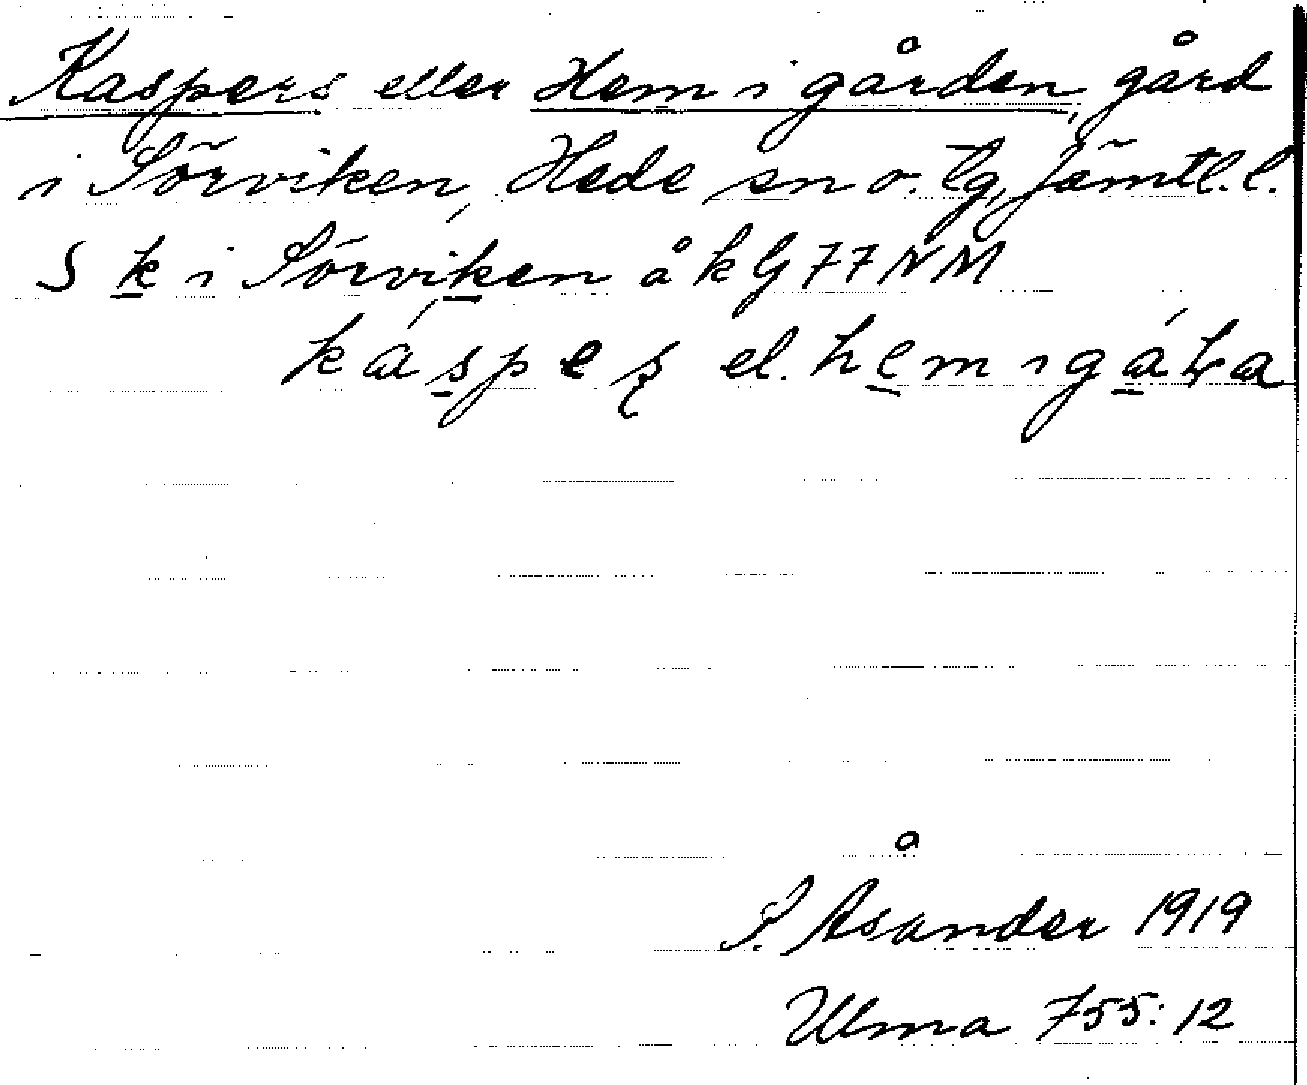 Kaspers eller Hem i gården, gård
i Sörviken, Hede sn o. tg, Jämtl. l.
S k i Sörviken å k G 77 NM
káspeʂ el. hem ɪ gáɽa
J. Åsander 1919
Ulma 755:12